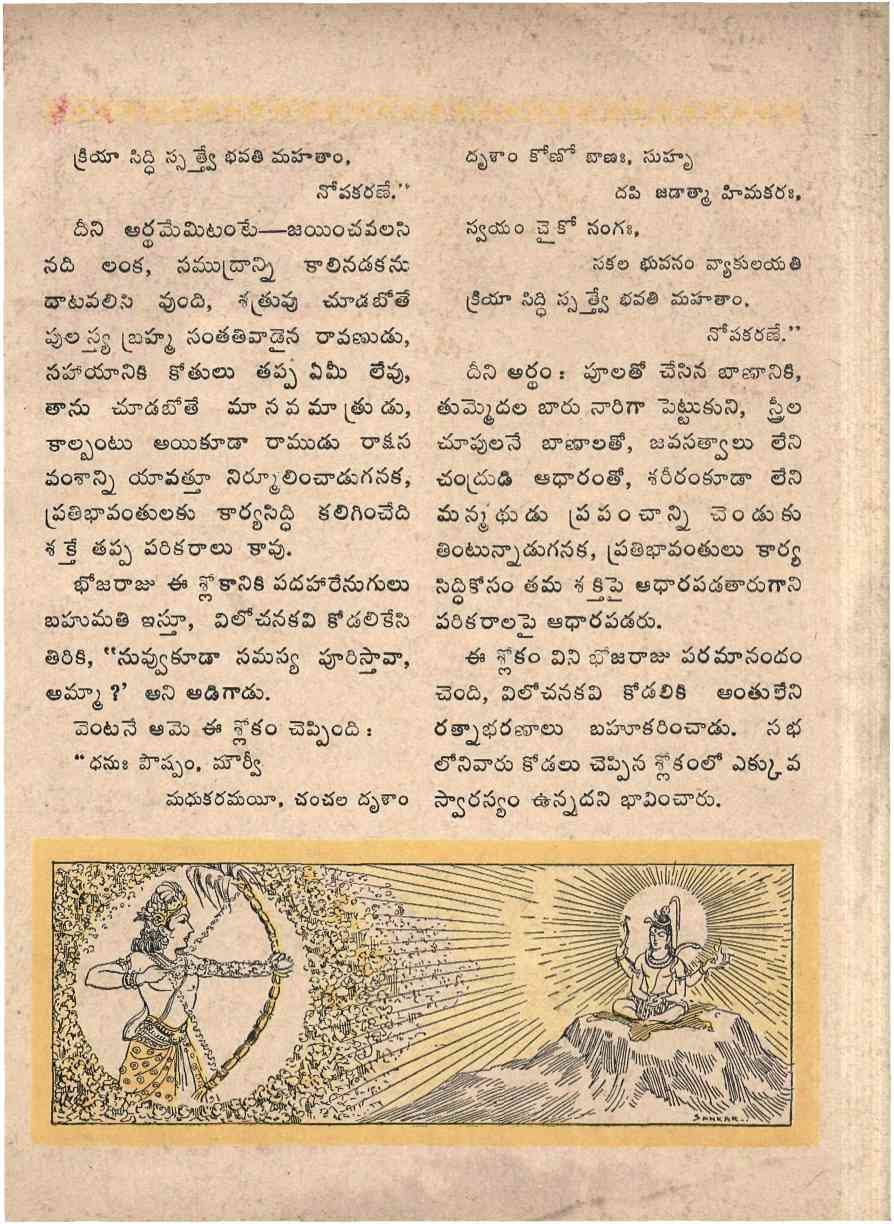 క్రియా సిద్ధి స్సత్త్వే భవతి మహతాం,
నోపకరణే.”
దీని అర్థమేమిటంటే—జయించవలసి
నది లంక, సముద్రాన్ని కాలినడకను
దాటవలిసి వుంది, శత్రువు చూడబోతే
పులస్త్య బ్రహ్మ సంతతివాడైన రావణుడు,
సహాయానికి కోతులు తప్ప ఏమీ లేవు,
తాను చూడబోతే మానవమాత్రుడు,
కాల్బంటు అయికూడా రాముడు రాక్షస
వంశాన్ని యావత్తూ నిర్మూలించాడుగనక,
ప్రతిభావంతులకు కార్యసిద్ధి కలిగించేది
శక్తే తప్ప పరికరాలు కావు.
భోజరాజు ఈ శ్లోకానికి పదహారేనుగులు
బహుమతి ఇస్తూ, విలోచనకవి కోడలికేసి
తిరికి, “నువ్వుకూడా సమస్య పూరిస్తావా,
అమ్మా?’ అని అడిగాడు.
వెంటనే ఆమె ఈ శ్లోకం చెప్పింది:
“ధనుః పౌష్పం, మౌర్వీ
మధుకరమయీ, చంచల దృశాం
దృశాం కోణో బాణః, సుహృ
దపి జడాత్మా హిమకరః,
స్వయం చైకో నంగః,
సకల భువనం వ్యాకులయతి
క్రియా సిద్ధి స్సత్త్వే భవతి మహతాం,
నోపకరణే.”
దీని అర్థం: పూలతో చేసిన బాణానికి,
తుమ్మెదల బారు నారిగా పెట్టుకుని, స్త్రీల
చూపులనే బాణాలతో, జవసత్వాలు లేని
చంద్రుడి ఆధారంతో, శరీరంకూడా లేని
మన్మథుడు ప్రపంచాన్ని చెండుకు
తింటున్నాడుగనక, ప్రతిభావంతులు కార్య
సిద్ధికోసం తమ శక్తిపై ఆధారపడతారుగాని
పరికరాలపై ఆధారపడరు.
ఈ శ్లోకం విని భోజరాజు పరమానందం
చెంది, విలోచనకవి కోడలికి అంతులేని
రత్నాభరణాలు బహూకరించాడు. సభ
లోనివారు కోడలు చెప్పిన శ్లోకంలో ఎక్కువ
స్వారస్యం ఉన్నదని భావించారు.
SANKAR..